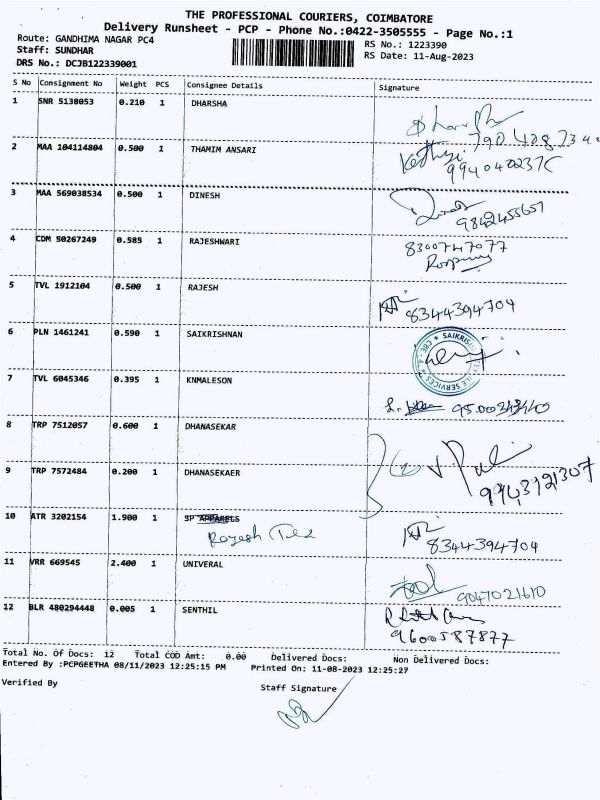 THE PROFESSIONAL COURIERS, COIMBATORE
Delivery Runsheet - PCP - Phone No.:0422-3505555 - Page No.:1
Route: GANDHIMA NAGAR PC4
RS No.: 1223390
Staff: SUNDHAR
RS Date: 11-Aug-2023
DRS No.: DCJB122339001
S No Consignment No Weight PCS Consignee Details Signature
1 SNR 5138053 0.210 1 DHARSHA
2 MAA 104114804 0.500 1 THAMIM ANSARI
3 MAA 569038534 0.500 1 DINESH
9842455657
4 CDM 50267249 0.585 1 RAJESHWARI 8300747077
5 TVL 1912104 0.500 1 RAJESH
8344394704
6 PLN 1461241 0.590 1 SAIKRISHNAN
7 TVL 6045346 0.395 1 KNMALESON
8 TRP 7512057 0.600 1 DHANASEKAR
9 TRP 7572484 0.200 1 DHANASEKAER
10 ATR 3202154 1.900 1 SP APPARELS
8344394704
11 VRR 669545 2.400 1 UNIVERAL
9047021610
12 BLR 480294448 0.005 1 SENTHIL
9600587877
Total No. Of Docs: 12 Total COD Amt: 0.00 Delivered Docs: Non Delivered Docs:
Entered By :PCPGEETHA 08/11/2023 12:25:15 PM Printed On: 11-08-2023 12:25:27
Verified By
Staff Signature